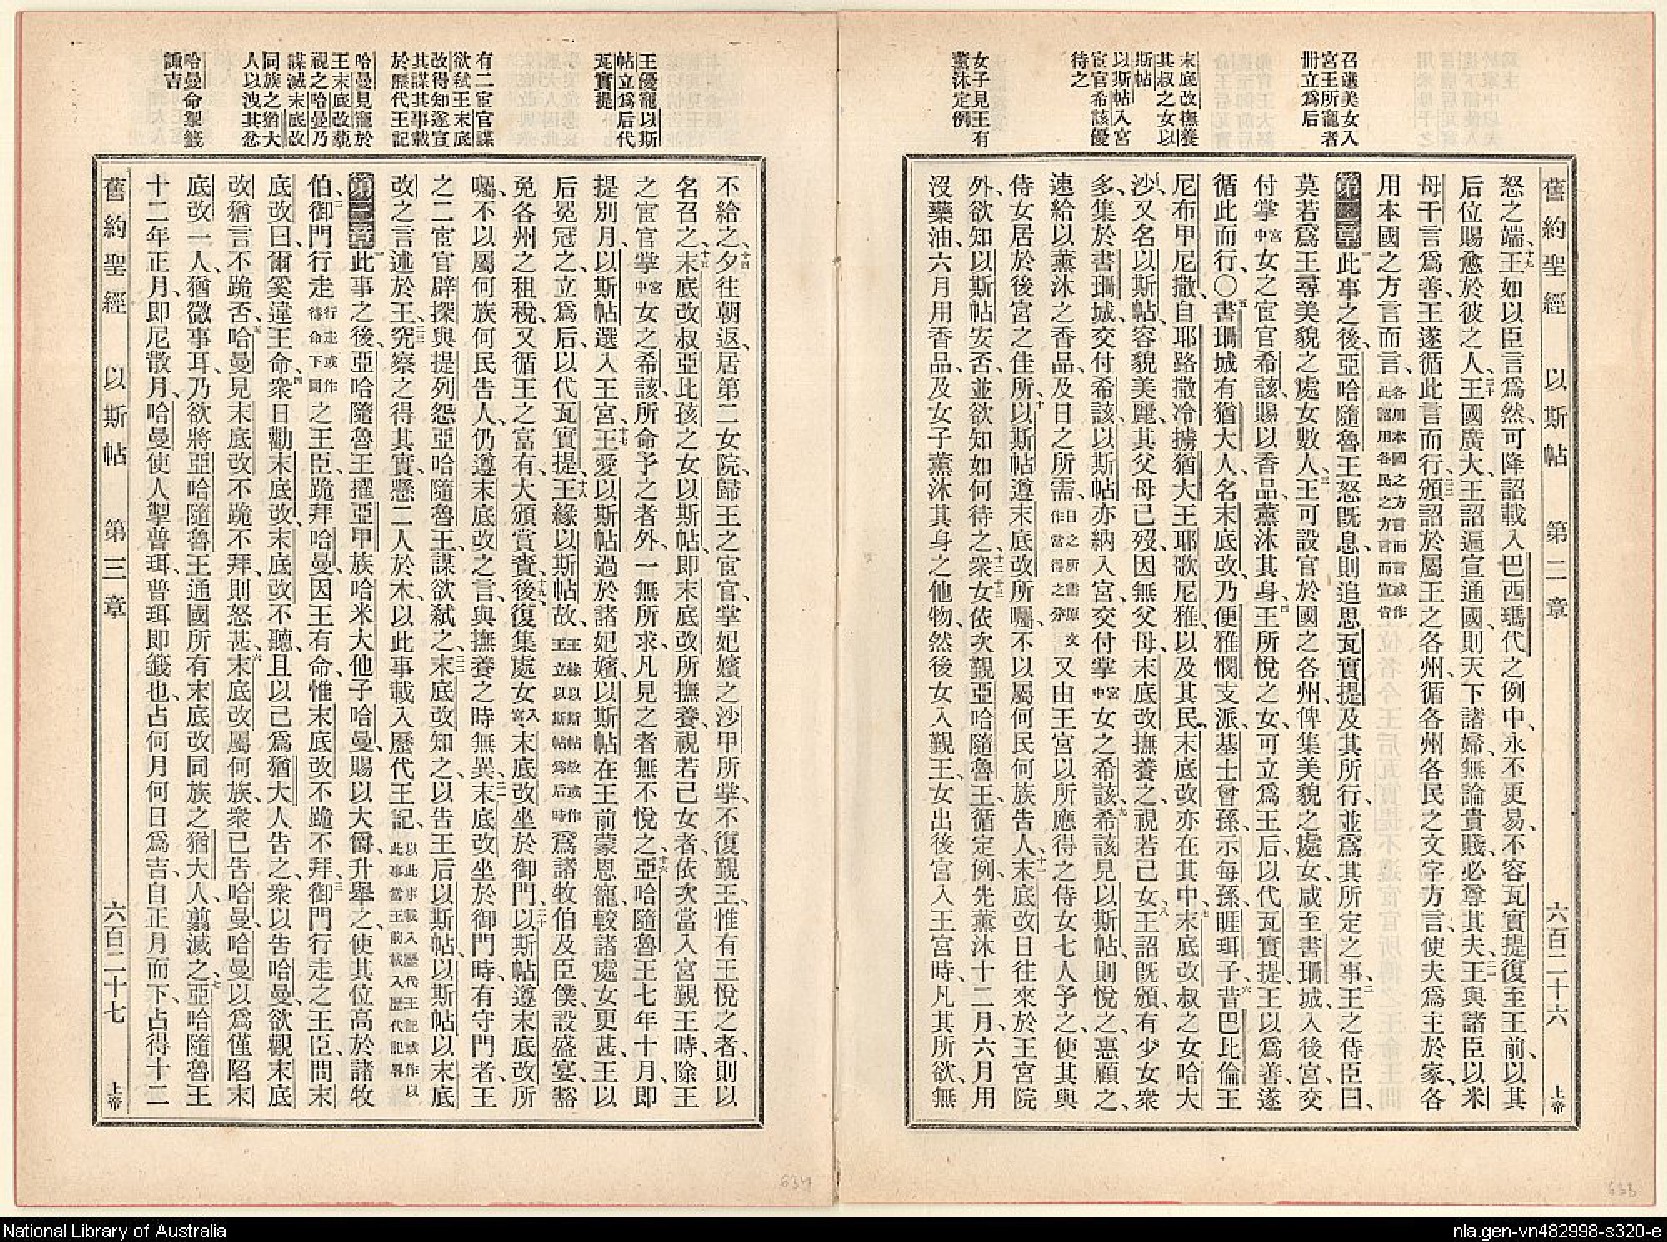 召選美女入
宮王所寵者
冊立爲后
末底改撫養
其叔之女以
斯帖
以斯帖入宮
宦官希該優
待之
女子見王有
薰沐定例
舊約聖經 以斯帖 第二章 六百二十六 上帝
怒之端、十九王如以臣言爲然、可降詔載入巴西瑪代之例中、永不更易、不容瓦實提復至王前、以其
后位賜愈於彼之人、二十王國廣大、王詔遍宣通國、則天下諸婦、無論貴賤、必尊其夫、二一王與諸臣以米
母干言爲善、王遂循此言而行、二二頒詔於屬王之各州、循各州各民之文字方言、使夫爲主於家、各
用本國之方言而言、各用本國之方言而言或作此詔用各民之方言而宣官
第二章一此事之後、亞哈隨魯王怒旣息、則追思瓦實提及其所行、並爲其所定之事、二王之侍臣曰、
莫若爲王尋美貌之處女數人、三王可設官於國之各州、俾集美貌之處女、咸至書珊城、入後宮、交
付掌宮中女之宦官希該、賜以香品、薰沐其身、四王所悅之女、可立爲王后、以代瓦實提、王以爲善、遂
循此而行、〇五書珊城有猶大人、名末底改、乃便雅憫支派、基士曾孫、示每孫、睚珥子、六昔巴比倫王
尼布甲尼撒、自耶路撒冷擄猶大王耶歌尼雅、以及其民、末底改亦在其中、七末底改叔之女哈大
沙、又名以斯帖、容貌美麗、其父母已歿、因無父母、末底改撫養之、視若己女、八王詔旣頒、有少女衆
多、集於書珊城、交付希該、以斯帖亦納入宮、交付掌宮中女之希該、九希該見以斯帖、則悅之、惠顧之、
速給以薰沐之香品、及日之所需、日之所需原文作當得之分又由王宮以所應得之侍女七人予之、使其與
侍女居於後宮之佳所、十以斯帖遵末底改所囑、不以屬何民何族告人、十一末底改日往來於王宮院
外、欲知以斯帖安否、並欲知如何待之、十二衆女依次覲亞哈隨魯王、循定例、先薰沐十二月、六月用
沒藥油、六月用香品、及女子薰沐其身之他物、然後女入覲王、女出後宮入王宮時、凡其所欲無
王優寵以斯
帖立爲后代
瓦實提
有二宦官謀
欲弒王末底
改得知遂宣
其謀其事載
於歷代王記
哈曼見寵於
王末底改藐
視之哈曼乃
謀滅末底改
同族之猶大
人以洩其忿
哈曼命掣籤
諏吉
不給之、十四夕往朝返、居第二女院、歸王之宦官、掌妃嬪之沙甲所掌、不復覲王、惟有王悅之者、則以
名召之、十五末底改叔亞比孩之女以斯帖、卽末底改所撫養、視若己女者、依次當入宮覲王時、除王
之宦官掌宮中女之希該、所命予之者外、一無所求、凡見之者無不悅之、十六亞哈隨魯王七年十月、卽
提別月、以斯帖選入王宮、十七王愛以斯帖、過於諸妃嬪、以斯帖在王前蒙恩寵、較諸處女更甚、王以
后冕冠之、立爲后、以代瓦實提、十八王緣以斯帖故、王緣以斯帖故或作王立以斯帖爲后時爲諸牧伯及臣僕、設盛宴、豁
免各州之租稅、又循王之富有、大頒賞賚、十九後復集處女入宮末底改坐於御門、二十以斯帖遵末底改所
囑、不以屬何族何民告人、仍遵末底改之言、與撫養之時無異、二一末底改坐於御門時、有守門者、王
之二宦官辟探與提列怨亞哈隨魯王、謀欲弒之、二二末底改知之、以告王后以斯帖、以斯帖以末底
改之言述於王、二三究察之得其實、懸二人於木、以此事載入歷代王記、以此事載入歷代王記或作以此事當王前載入歷代記畧
第三章一此事之後、亞哈隨魯王擢亞甲族哈米大他子哈曼、賜以大爵、升舉之、使其位高於諸牧
伯、二御門行走行走或作待命下同之王臣、跪拜哈曼、因王有命、惟末底改不跪不拜、三御門行走之王臣問末
底改曰、爾奚違王命、四衆日勸末底改、末底改不聽、且以己爲猶大人告之、衆以告哈曼、欲觀末底
改猶言不跪否、五哈曼見末底改不跪不拜、則怒甚、六末底改屬何族、衆已告哈曼、哈曼以爲僅陷末
底改一人、猶微事耳、乃欲將亞哈隨魯王通國所有末底改同族之猶大人、翦滅之、七亞哈隨魯王
十二年正月、卽尼散月、哈曼使人掣普珥、普珥卽籤也、占何月何日爲吉、自正月而下、占得十二
舊約聖經 以斯帖 第三章 六百二十七 上帝
National Library of Australia
nla.gen-vn482998-s320-e